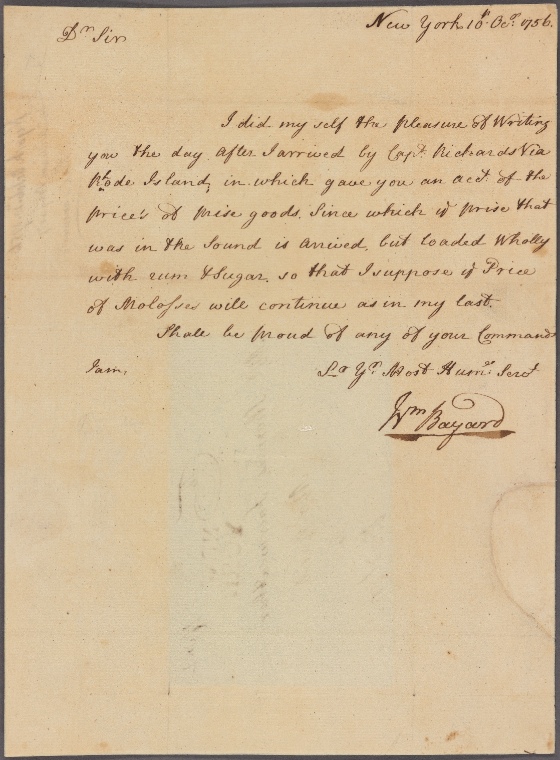 New York 18th. Octr. 1756.
Dr. Sir
I did my self the pleasure of Writing
you the day after I arrived by Capt. Richards Via
Rhode Island, in which gave you an acct. of the
price's of prise goods. Since which ye prise that
was in the Sound is arrived, but loaded Wholly
with rum & Sugar, so that I suppose ye Price
of Molosses will continue as in my last.
Shall be proud of any of your Commands
I am, Sr. Yr. Most Humle. Servt
Wm Bayard